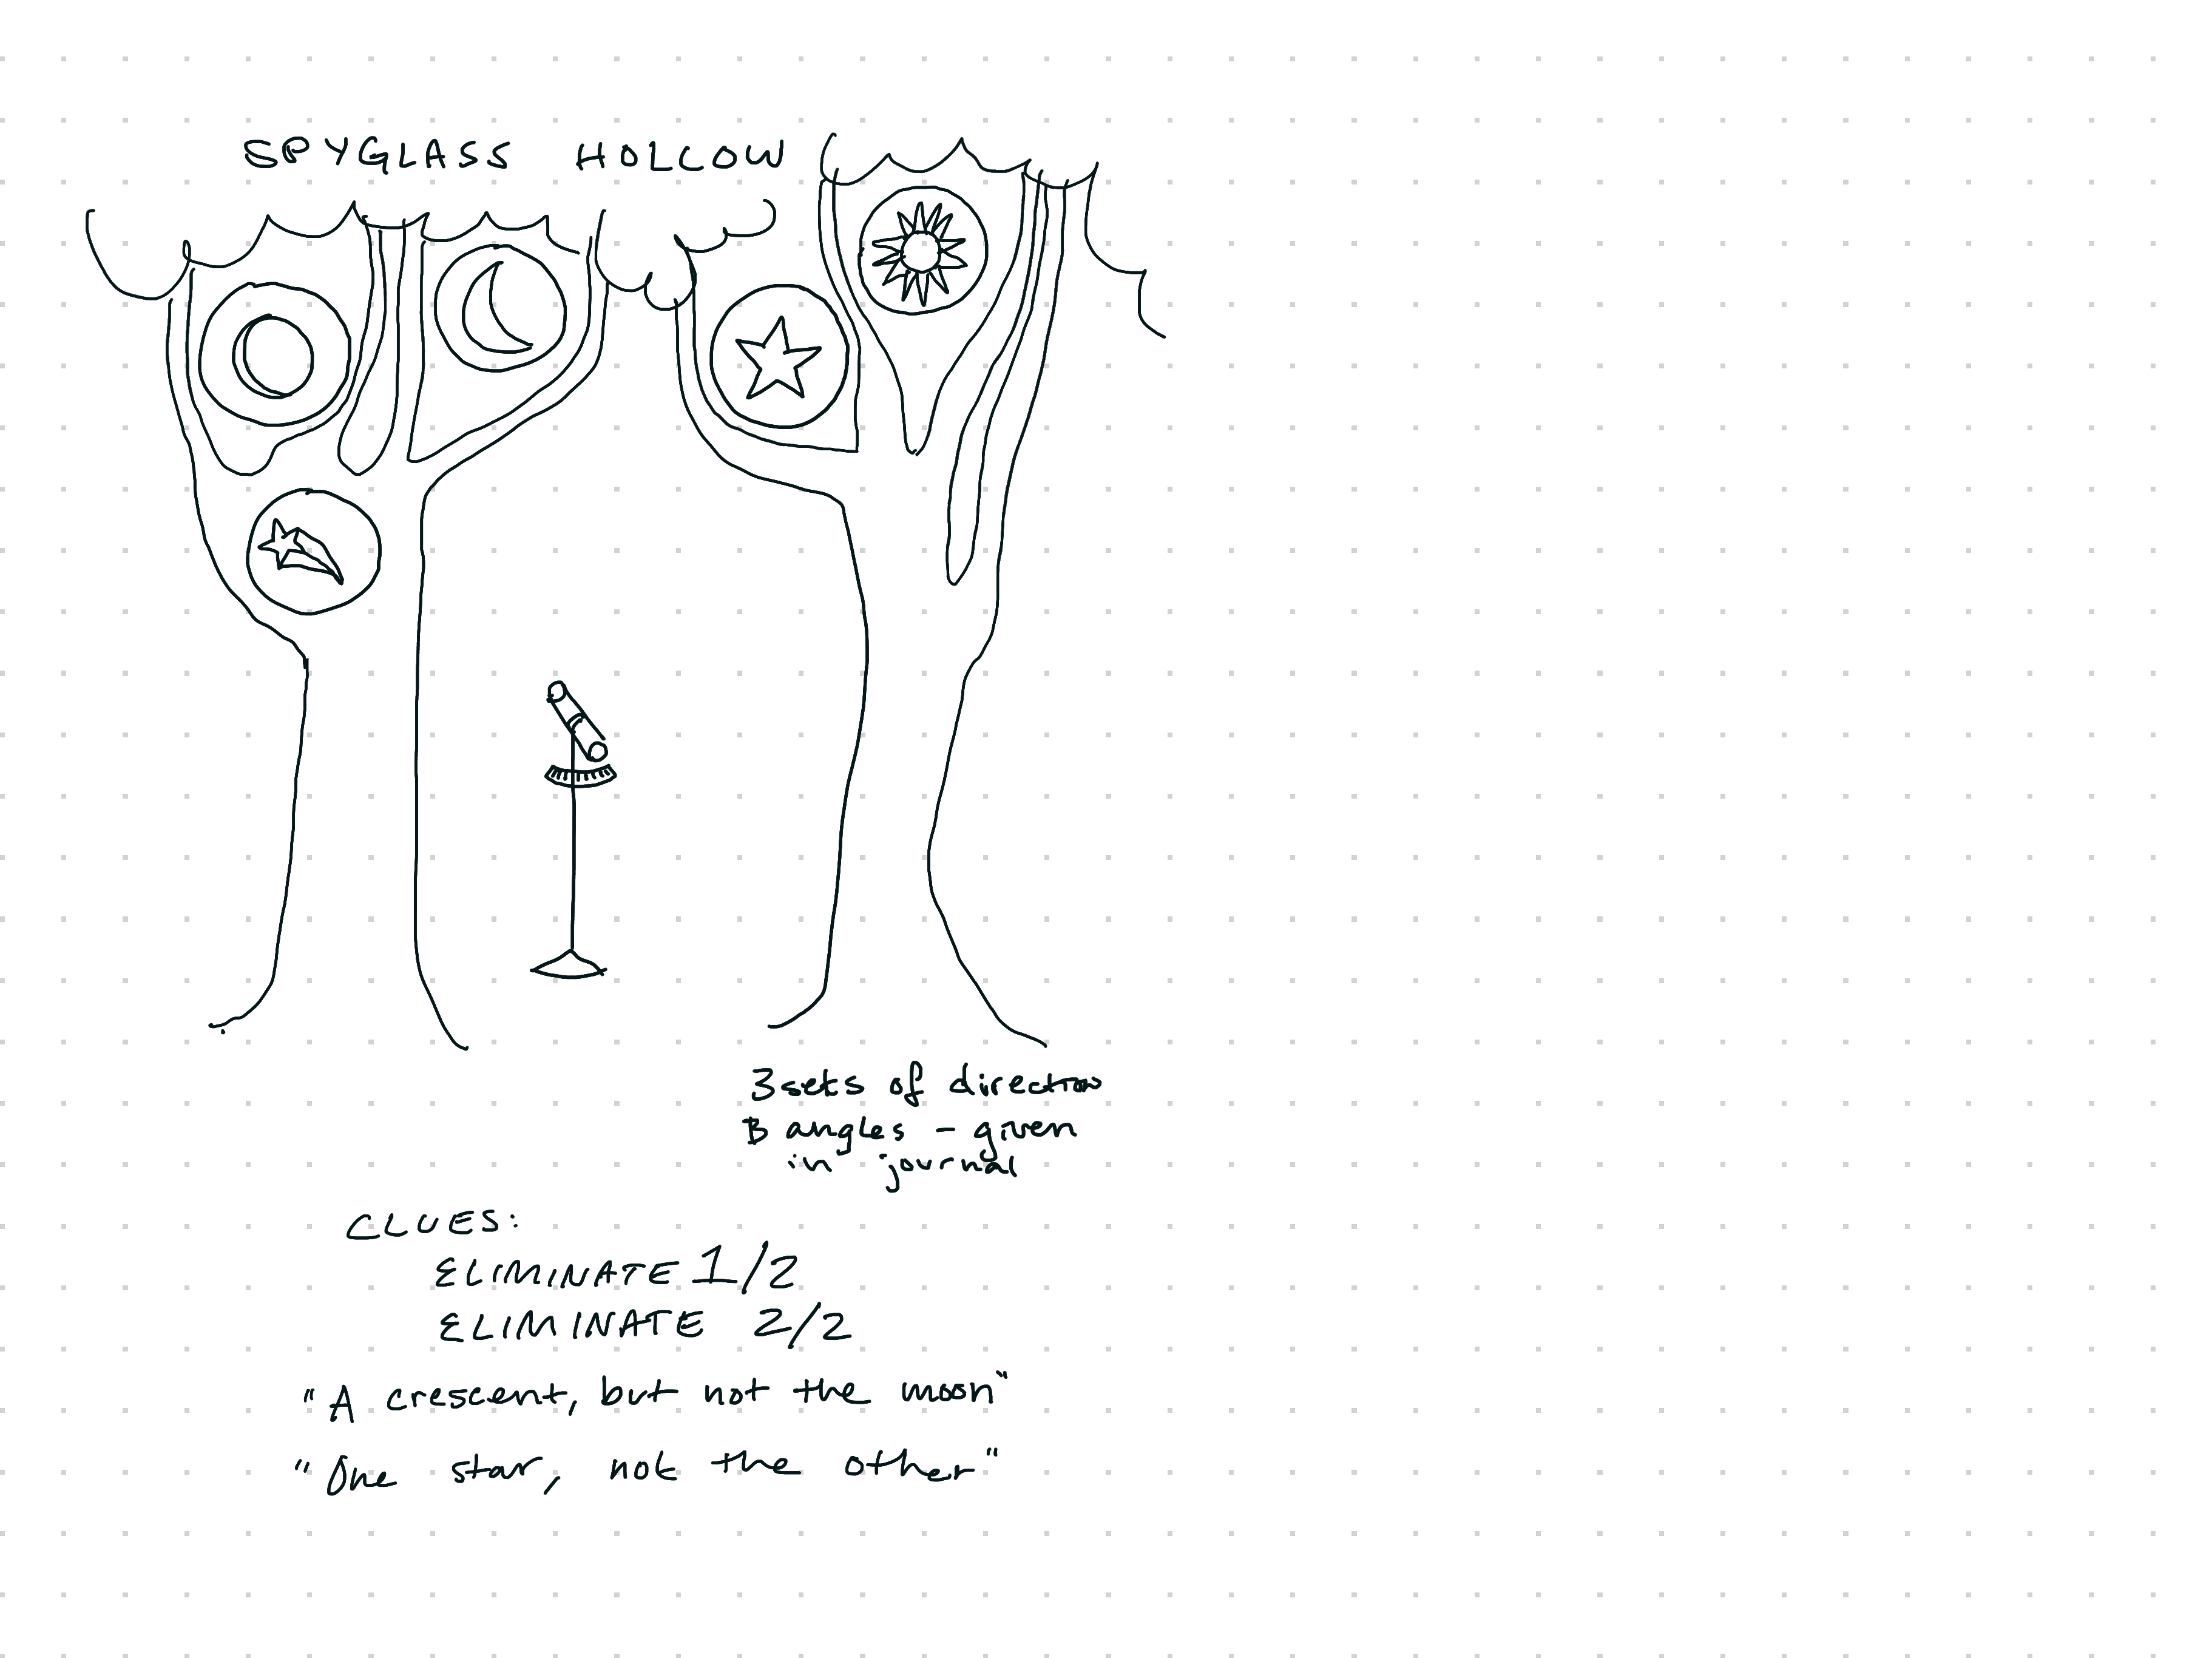 SPYGLASS HOLLOW
3 sets of directions
& angles - given
in journal
CLUES:
ELIMINATE 1/2
ELIMINATE 2/2
"A crescent, but not the moon"
"One star, not the other"